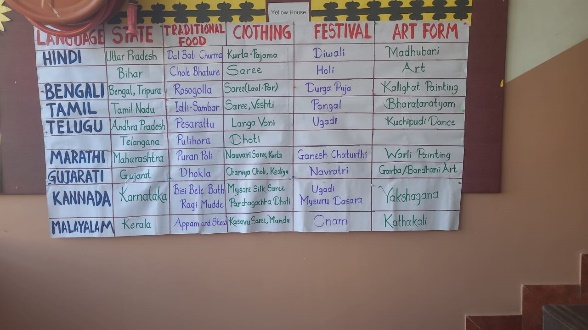 Yellow House
LANGUAGE STATE TRADITIONAL FOOD ClOTHING FESTIVAL ART FORM
HINDI Uttar Pradesh Dal Bati Churma Kurta-Pajama Diwali Madhubani
Bihar Chole Bhature Saree Holi Art
BENGALI Bengal, Tripura Rosogolla Saree(Laal-Par) Durga Puja Kalighat Painting
TAMIL Tamil Nadu Idli-Sambar Saree, Veshti Pongal Bharatanatyam
TELUGU Andhra Pradesh Pesarattu Langa Voni Ugadi Kuchipudi Dance
Telangana Pulihora Dhoti
MARATHI Maharashtra Puran Poli Nauvari Saree, Kurta Ganesh Chaturthi Warli Painting
GUJARATI Gujarat Dhokla Chaniya Choli, Kediyu Navratri Garba/Bandhani Art
KANNADA Karnataka Bisi Bele Bath Mysore Silk Saree Ugadi Yakshagana
Ragi Mudde Panchagachta Dhoti Mysuru Dasara
MALAYALAM Kerala Appam and Stew Kasavu Saree, Mundu Onam Kathakali